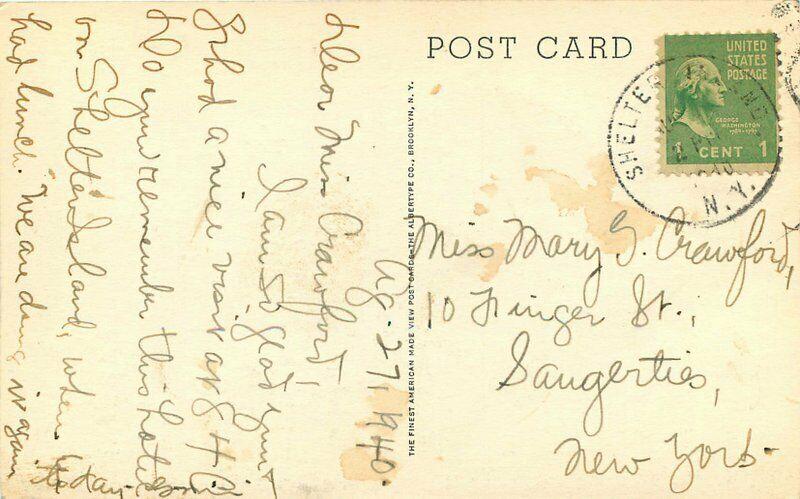 POST CARD
UNITED
STATES
POSTAGE
GEORGE
WASHINGTON
1789-1797
1 CENT 1
SHELTER
N.Y.
THE FINEST AMERICAN MADE VIEW POST CARDS—THE ALBERTYPE CO., BROOKLYN, N. Y.
Miss Mary G. Crawford,
10 Finger St.,
Saugerties,
New York.
Aug. 27, 1940.
Dear Miss Crawford,
I am so glad you +
I had a nice visit at
Do you remember this hotel
on Shelter Island, where
had lunch. We are doing it again
today